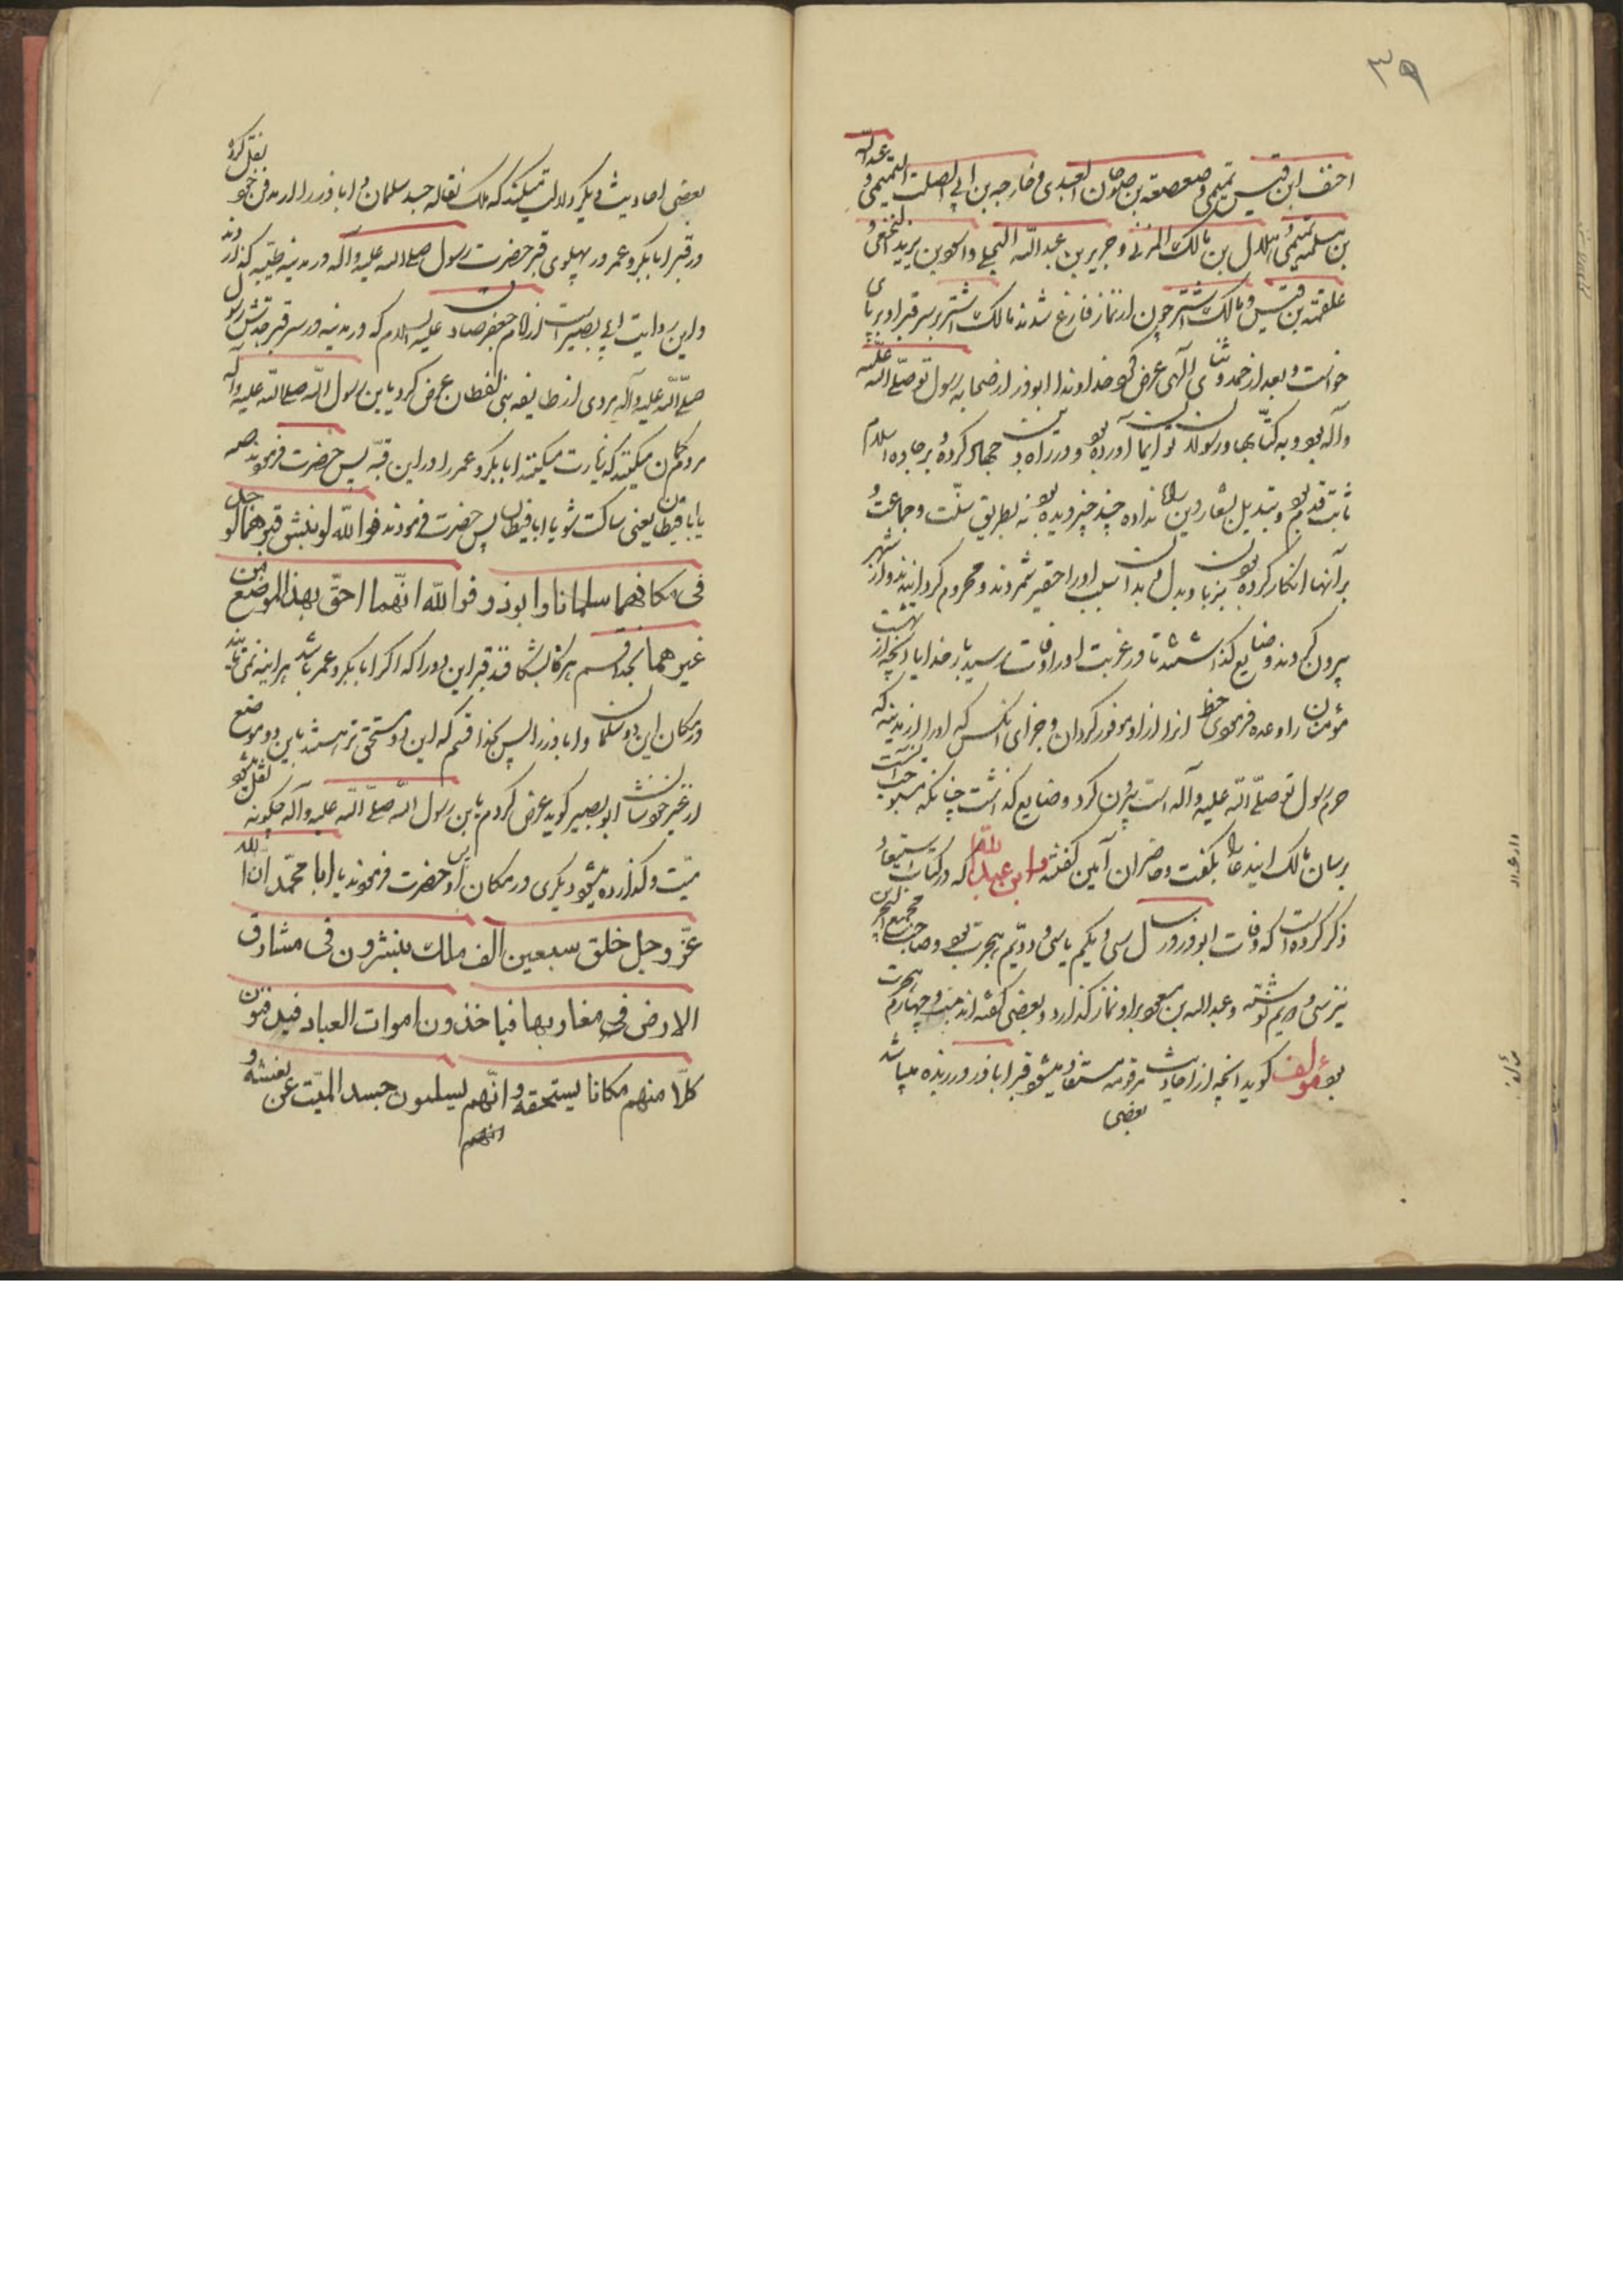 ۳۹
احنف ابن قیس تمیمی و صعصعة بن صوحان العبدی و خارجه بن ابی الصلت التمیمی و عبد الله
بن مسلمه تمیمی و هلال بن مالک المزنی و جریر بن عبد الله البجلی و اسود بن یزید النخعی و
علقمه بن قیس و مالک اشتر چون از نماز فارغ شدند مالک اشتر بر سر قبر او بر پای
خواست و بعد از حمد و ثنای الهی عرض کرد خداوندا ابوذر از صحابه رسول تو صلی الله علیه
وآله بود و به کتابها و رسولان تو ایمان آورده بود و در راه دین جهاد کرده و بر جاده اسلام
ثابت قدم بود و تبدیل شعار دین راه نداده چند چیز دیده بود نه بطریق سنّت و جماعت و
بر آنها انکار کرده بود بزبان و بدل بدان سبب او را حقیر شمردند و محروم گردانیدند و از شهر
بیرون کردند و ضایع گذاشتند تا در غربت او را وفات رسید بار خدایا آنچه از بهشت
مؤمنان را وعده فرمودی حظ او را از آن موفور گردان و جزای آنکس که او را از مدینه که
حرم رسول تو صلّی الله علیه وآله است بیرون کرد و ضایع گذاشت چنانکه مستوجب آنست
برسان مالک این دعا بگفت و حاضران آمین گفتند و ابن عبد الله که در کتاب استیعاب
ذکر کرده است که وفات ابوذر در سال سی و یکم یا سی و دویّم هجرت بود و صاحب مجمع البحرین
نیز سی و دویم نوشته و عبد الله بن مسعود بر او نماز گذارد و بعضی گفته اند بیست و چهارم هجرت
بود مؤلف گوید آنچه از احادیث مرقومه مستفاد میشود قبر اباذر در ربذه میباشد
بعضی
بعضی احادیث دیگر دلالت میکند که ملک نقاله جسد سلمان و اباذر را از مدفن خود نقل کرده
در قبر ابابکر و عمر در پهلوی قبر حضرت رسول صلی الله علیه وآله در مدینه طیّبه گذاردند
و این روایت ابی بصیر است از امام جعفر صادق علیه السلام که در مدینه در سر قبر جدش رسول
صلّی الله علیه وآله مردی از طایفه بنی لفطان عرض کرد یابن رسول الله صلی الله علیه وآله
مردم گمان میکنند که زیارت میکنند ابابکر و عمر را در این قبّه پس حضرت فرمودند صه
یا ابا قیطان یعنی ساکت شو یا ابا قیطان پس حضرت فرمودند فو الله لو نبش قبرهما لوجد
فی مکانهما سلمانا و ابوذر فو الله انّهما احقّ بهذا الموضع من
غیرهما بخدا قسم هرگاه بشکافند قبر این دو را که اگر ابابکر و عمر باشد هر آینه می یابند
در مکان این دو سلمان و اباذر را پس بخدا قسم که این دو مستحق تر هستند باین دو موضع
از غیر خودشان ابو بصیر گوید عرض کردم یابن رسول الله صلّی الله علیه وآله چگونه نقل میشود
میّت و گذارده میشود دیگری در مکان او پس حضرت فرمودند یا ابا محمّد انّ الله
عزّ و جل خلق سبعین الف ملک ینشرون فی مشارق
الارض فی مغاربها فیاخذون اموات العباد فیدفنون
کلّا منهم مکانا یستحقه و انّهم یسلبون جسد المیّت عن نعشه و
انهم